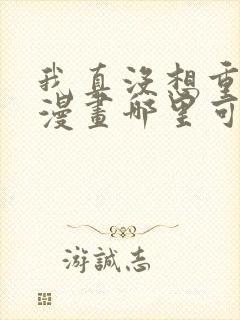 我真没想重
漫畫哪里可
游誠志